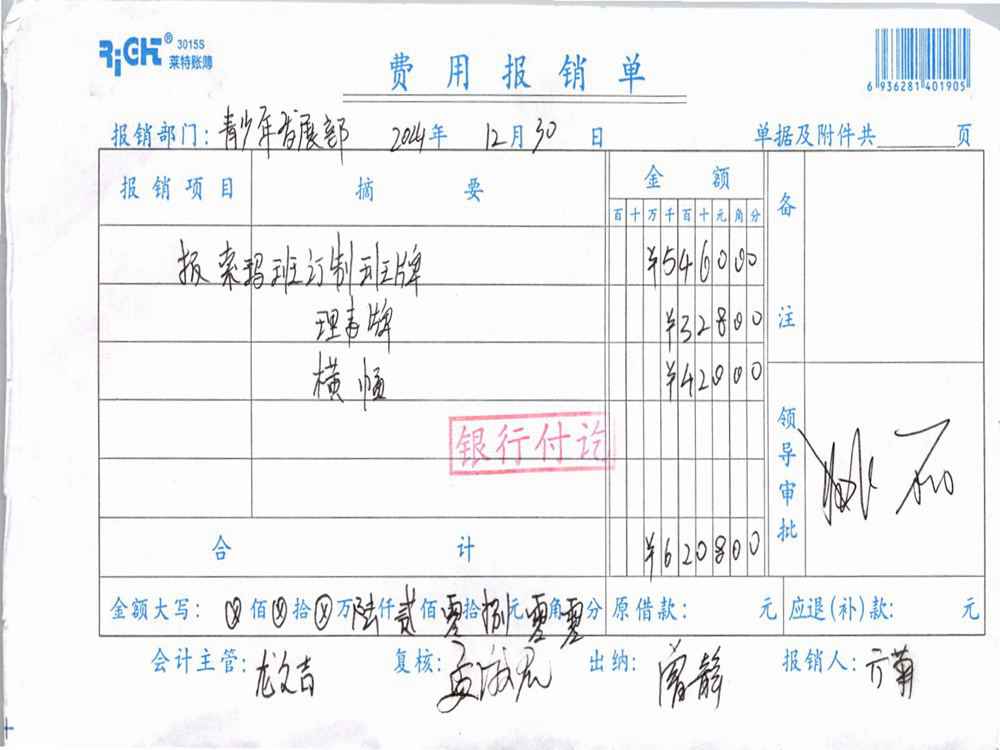 RiGHT® 3015S
莱特账簿
费用报销单
6 936281 401905
报销部门:青少年发展部 2024年 12月30日 单据及附件共 页
报销项目 摘要 金额 备注
百十万千百十元角分
报索玛班订制班牌 ¥546000
理事牌 ¥32800
横幅 ¥42000
银行付讫
领导审批
合计 ¥620800
金额大写:ⓧ佰ⓧ拾ⓧ万陆仟贰佰零拾捌元零角零分 原借款: 元 应退(补)款: 元
会计主管:龙文吉 复核:孟淑宏 出纳:曾静 报销人:方菊